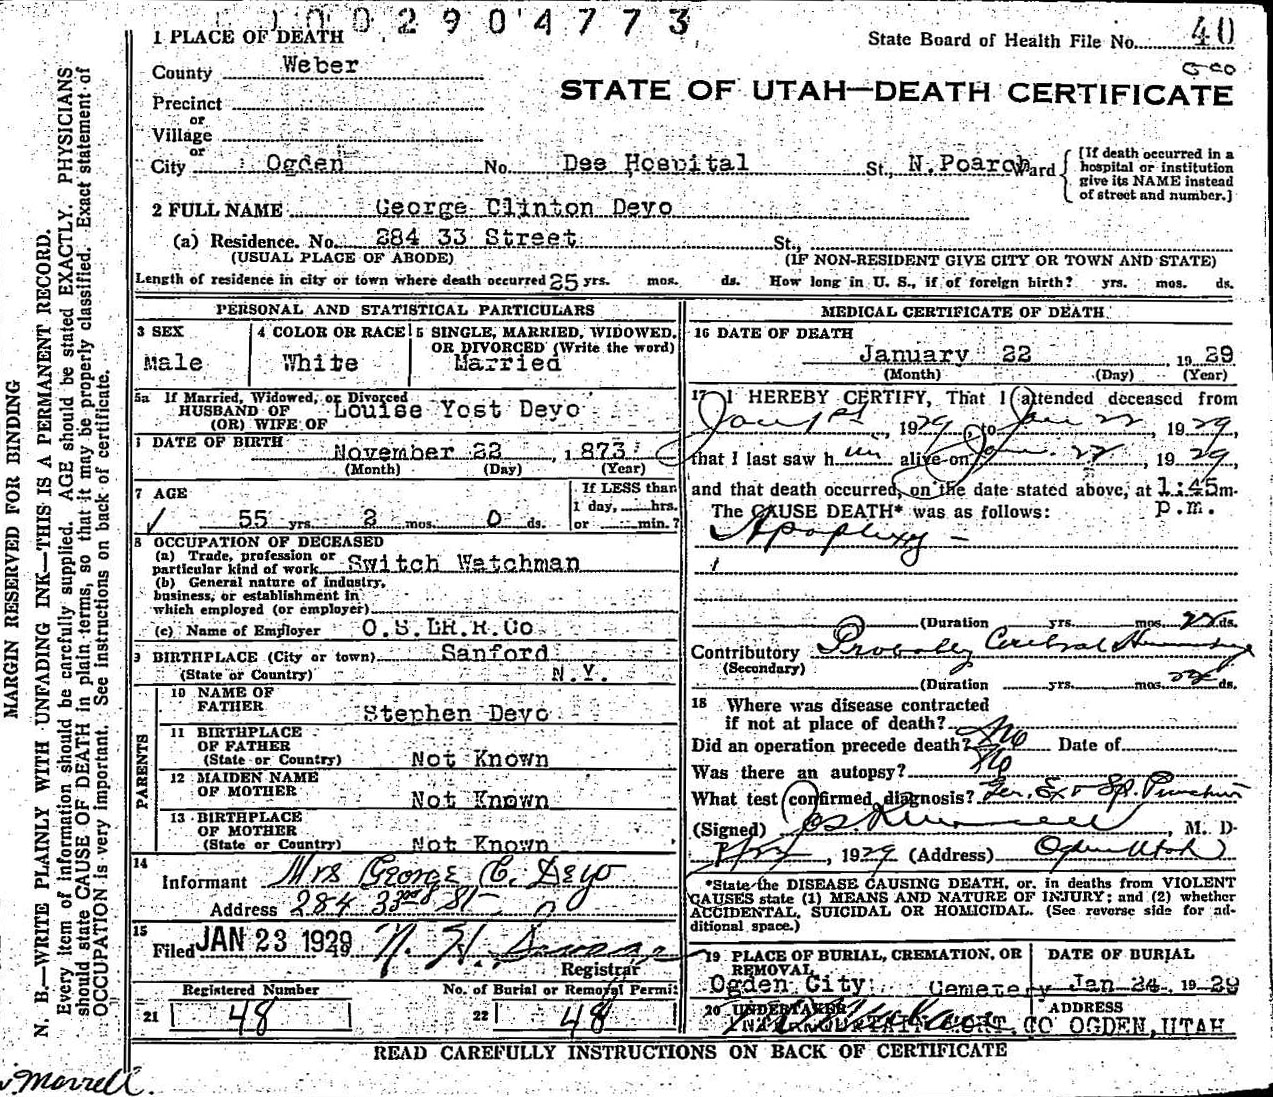 0 0 2 9 0 4 7 7 3
1 PLACE OF DEATH
State Board of Health File No. 40
County Weber
STATE OF UTAH—DEATH CERTIFICATE
Precinct
or
Village
or
City Ogden No. Dee Hospital St., N. Poarch Ward
[If death occurred in a
hospital or institution
give its NAME instead
of street and number.]
2 FULL NAME George Clinton Deyo
(a) Residence. No. 284 33 Street St.,
(USUAL PLACE OF ABODE) (IF NON-RESIDENT GIVE CITY OR TOWN AND STATE)
Length of residence in city or town where death occurred 25 yrs. mos. ds. How long in U. S., if of foreign birth? yrs. mos. ds.
PERSONAL AND STATISTICAL PARTICULARS
3 SEX
Male
4 COLOR OR RACE
White
5 SINGLE, MARRIED, WIDOWED,
OR DIVORCED (Write the word)
Married
5a If Married, Widowed, or Divorced
HUSBAND OF Louise Yost Deyo
(OR) WIFE OF
DATE OF BIRTH
November 22, 1873
(Month) (Day) (Year)
7 AGE
55 yrs. 2 mos. 0 ds.
If LESS than
1 day, hrs.
or min.?
8 OCCUPATION OF DECEASED
(a) Trade, profession or
particular kind of work Switch Watchman
(b) General nature of industry,
business, or establishment in
which employed (or employer)
(c) Name of Employer O.S.LR.R.Co
9 BIRTHPLACE (City or town) Sanford
(State or Country) N.Y.
PARENTS
10 NAME OF
FATHER Stephen Deyo
11 BIRTHPLACE
OF FATHER
(State or Country) Not Known
12 MAIDEN NAME
OF MOTHER Not Known
13 BIRTHPLACE
OF MOTHER
(State or Country) Not Known
14
Informant Mrs George C. Deyo
Address 284 33rd St
15
Filed JAN 23 1929 N. H.
Registrar
Registered Number No. of Burial or Removal Permit
21 48 22 48
MEDICAL CERTIFICATE OF DEATH
16 DATE OF DEATH
January 22, 1929
(Month) (Day) (Year)
17 I HEREBY CERTIFY, That I attended deceased from
Jan 1st, 1929 to Jan 22, 1929,
that I last saw him alive on Jan. 22, 1929,
and that death occurred, on the date stated above, at 1:45 m.
The CAUSE DEATH* was as follows: p.m.
Apoplexy —
(Duration yrs. mos. 22 ds.
Contributory Probably Cerebral
(Secondary)
(Duration yrs. mos. 22 ds.
18 Where was disease contracted
if not at place of death?
Did an operation precede death? No Date of
Was there an autopsy? No
What test confirmed diagnosis? Gen. Ex & Sp. Puncture
(Signed) , M. D-
, 1929 (Address) Ogden Utah
*State the DISEASE CAUSING DEATH, or, in deaths from VIOLENT
CAUSES state (1) MEANS AND NATURE OF INJURY; and (2) whether
ACCIDENTAL, SUICIDAL OR HOMICIDAL. (See reverse side for ad-
ditional space.)
19 PLACE OF BURIAL, CREMATION, OR
REMOVAL
Ogden City Cemetery
DATE OF BURIAL
Jan 24, 1929
20 UNDERTAKER
CO OGDEN, UTAH
ADDRESS
READ CAREFULLY INSTRUCTIONS ON BACK OF CERTIFICATE
MARGIN RESERVED FOR BINDING
N. B.—WRITE PLAINLY WITH UNFADING INK—THIS IS A PERMANENT RECORD.
Every item of information should be carefully supplied. AGE should be stated EXACTLY. PHYSICIANS
should state CAUSE OF DEATH in plain terms, so that it may be properly classified. Exact statement of
OCCUPATION is very important. See instructions on back of certificate.
Morrell.